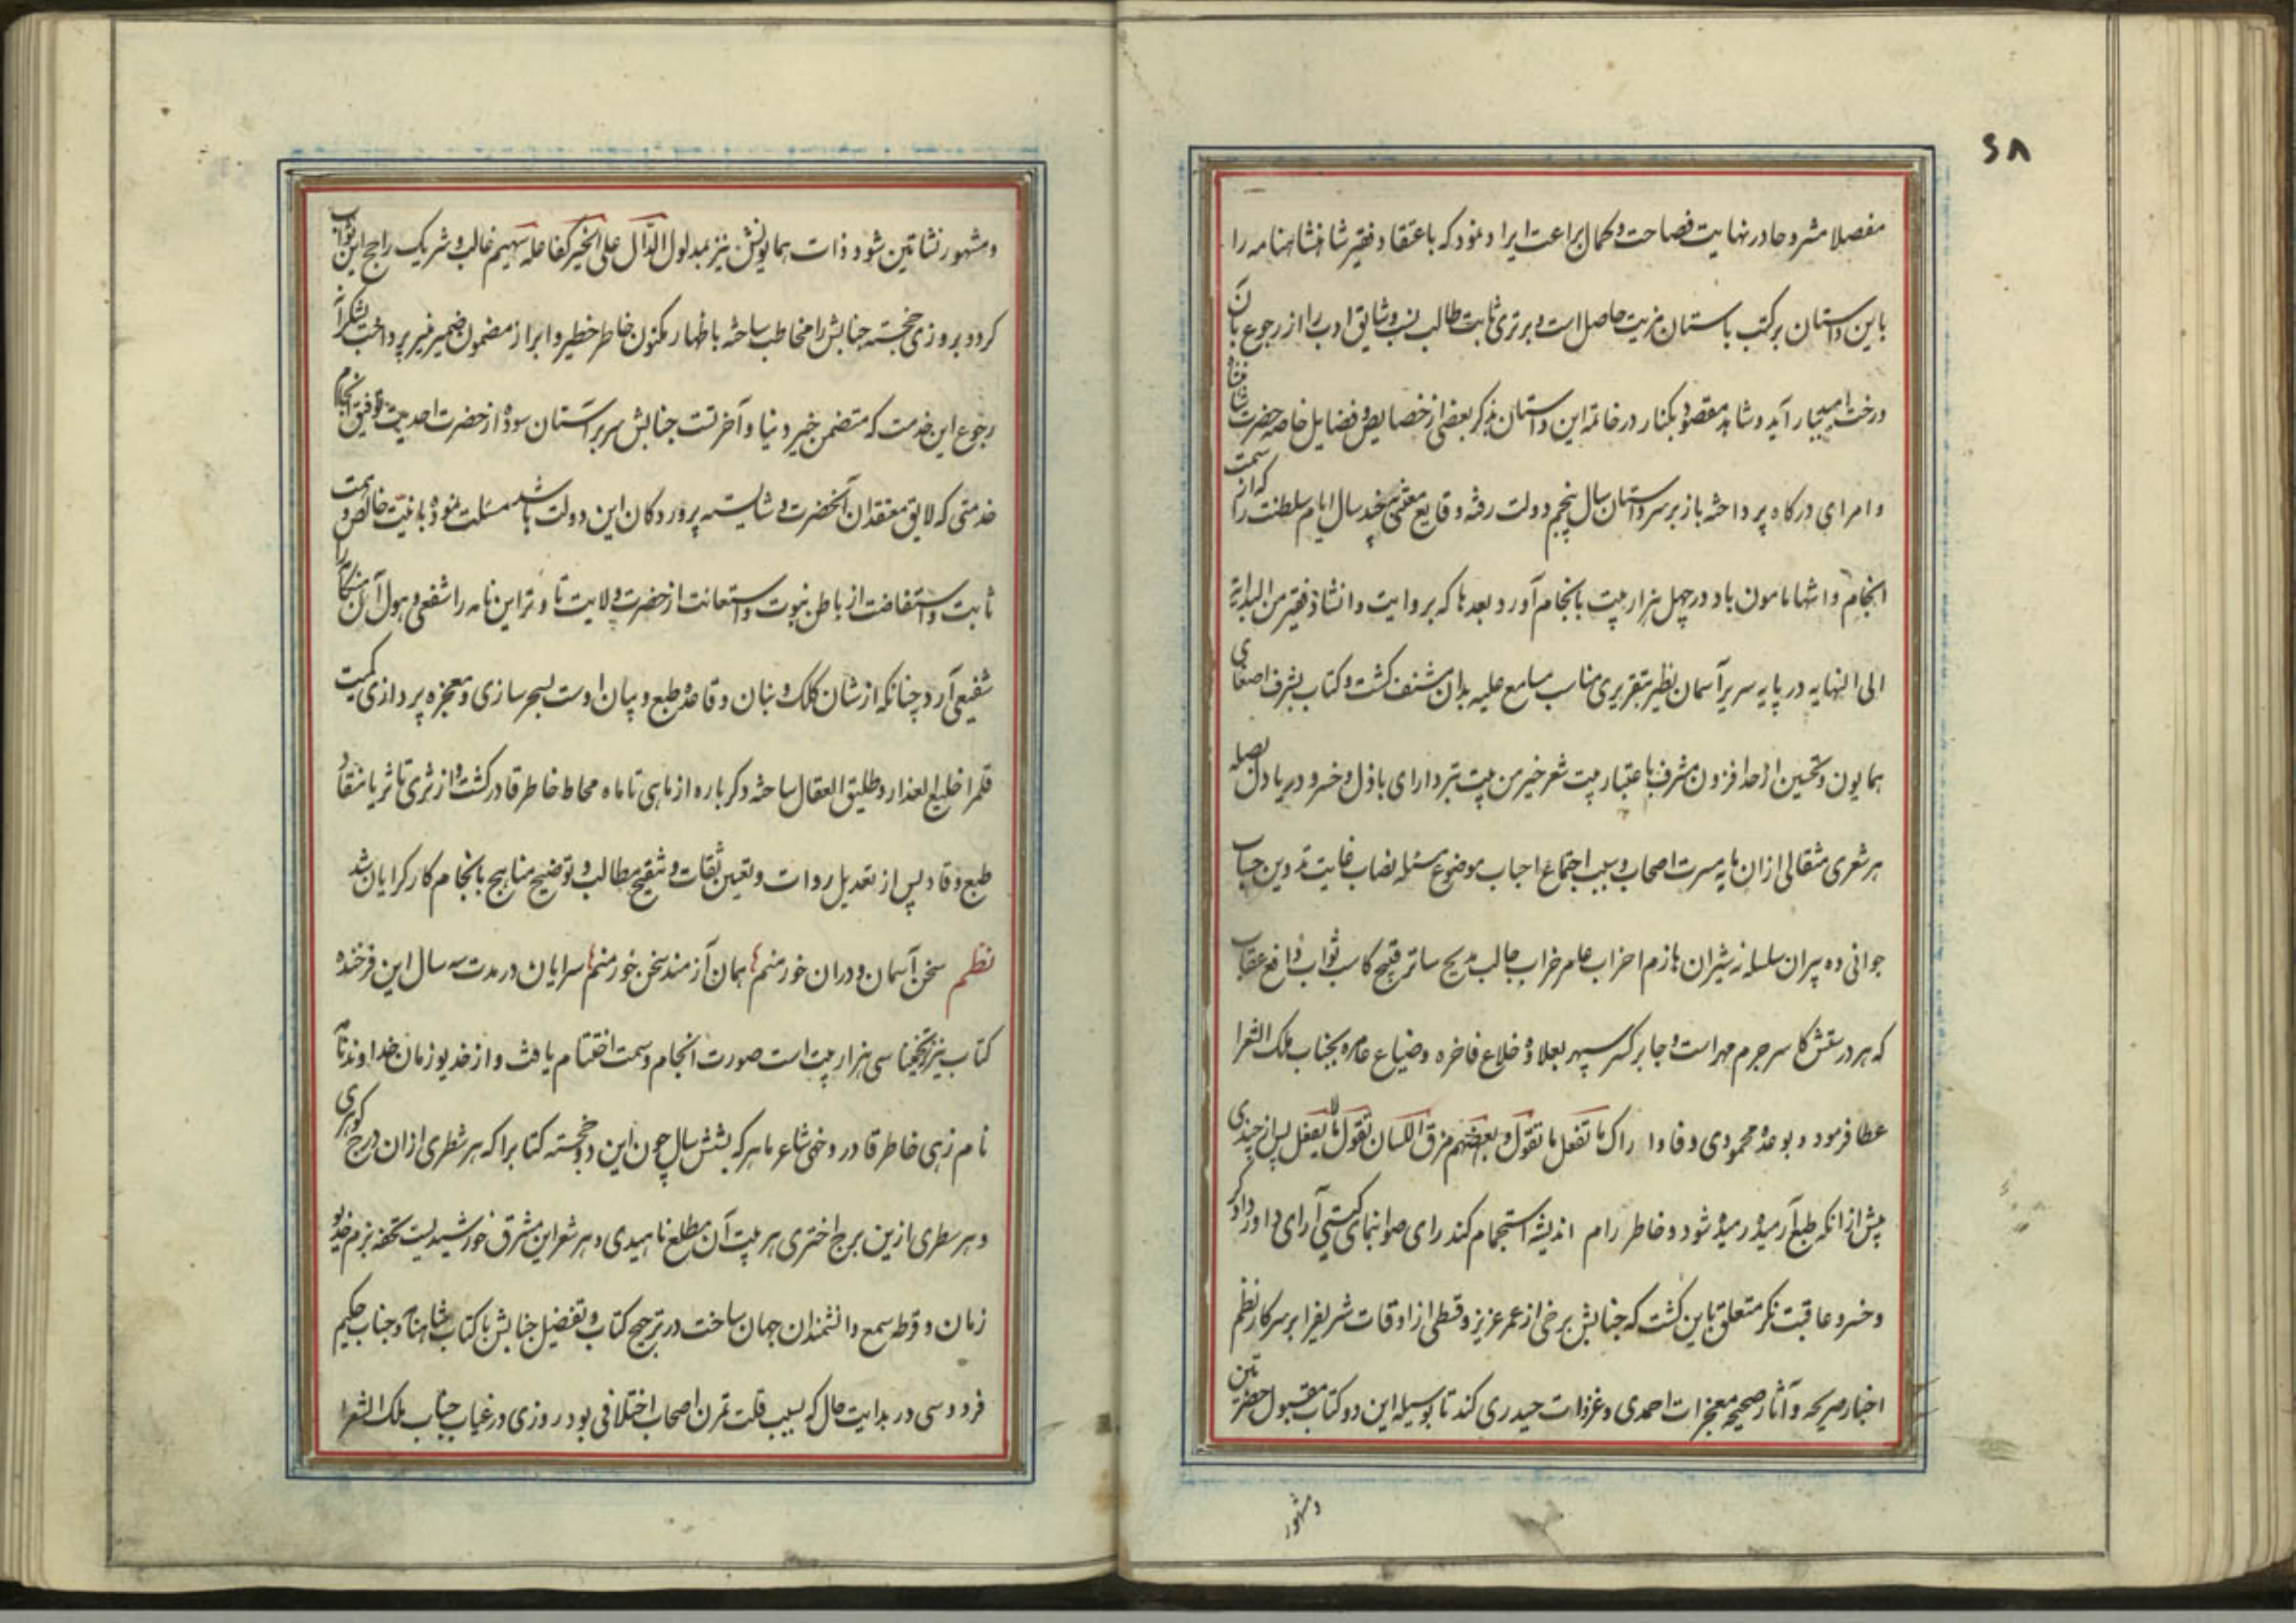 ۶۸
مفصلا مشروحا در نهایت فصاحت و کمال براعت ایراد نمود که باعتقاد فقیر شاهنشاهنامه را
باین داستان بر کتب باستان مزیت حاصل است و برتری ثابت طالب نسب و شایق ادب را از رجوع بآن
درخت امید ببار آید و شاهد مقصود بکنار در خاتمه این داستان بذکر بعضی از خصایص و فضایل خاصه حضرت شاهنشاه
و امرای درگاه پرداخته باز بر سر داستان سال پنجم دولت رفته و قایع مقتضی چند سال ایام سلطنت را که از سمت
انجام و انتها مامون باد در چهل هزار بیت بانجام آورد بعدها که بروایت و انشاد فقیر من البدایة
الی النهایه در پایه سریر آسمان نظیر بتقریری مناسب مسامع علیه بدان مشنف کشت و کتاب بشرف اصغای
همایون و تحسین از حد افزون مشرف باعتبار بیت شعر خیر من بیت تبر دارای باذل و خسرو دریا دل بصله
هر شعری مثقالی از ان مایه مسرت اصحاب و سبب اجتماع احباب موضوع مسئله نصاب غایت تدوین حساب
جوانی ده پیران سلسله نه شیران هازم احزاب عامر خراب جالب مدیح ساتر قبیح کاسب ثواب دافع عقاب
که هر درستش کاسر جرم مهر است و جابر کسر سپهر بعلاوه خلاع فاخره و ضیاع عامره بجناب ملک الشعرا
عطا فرمود و بوعده محمودی وفا وا راک ما تفعل ما تقول و بعضهم مزق اللسان تقول ما لا یفعل پس از چندی
پیش از انکه طبع آرمیده رمیده شود و خاطر رام اندیشه استجمام کند رای صوابنمای کیتی آرای داور دادگر
و خسرو عاقبت نکر متعلق باین کشت که جنابش برخی از عمر عزیز و قسطی از اوقات شریفرا بر سر کار نظم
اخبار صریحه و آثار صحیحه معجزات احمدی و غزوات حیدری کند تا بوسیله این دو کتاب مقبول حضرتین
و مشهور
و مشهور نشاتین شود و ذات همایونش نیز بمدلول الدّال علی الخیر کفاعله سهیم غالب و شریک راجح این ثواب
کردد بروزی خجسته جنابش را مخاطب ساخته باظهار مکنون خاطر خطیر و ابراز مضمون ضمیر منیر پرداخت بشکر آن
رجوع این خدمت که متضمن خیر دنیا و آخرتست جنابش سر بر آستان سوده از حضرت احدیت توفیق انجام
خدمتی که لایق معتقدان آنحضرت و شایسته پروردکان این دولت باشد مسئلت نموده با نیّت خالص و همت
ثابت و استفاضت از باطن نبوت و استعانت از حضرت ولایت تا وتر این نامه را شفعی و هول آن هنگامه را
شفیعی آرد چنانکه از شان کلک و بنان و قاعده طبع و بیان اوست بسحرسازی و معجزه پردازی کمیت
قلمرا خلیع العذار و طلیق العقال ساخته دکرباره از ماهی تا ماه محاط خاطر قادر کشت و از ثری تا ثریا منقاد
طبع وقاد پس از تعدیل روات و تعیین ثقات و تنقیح مطالب و توضیح مناهج بانجام کار کرایان شد
نظم سخن آسمان و دران خور منم همان آزمند سخن خور منم سرایان در مدت سه سال این فرخنده
کتاب نیز که تخمینا سی هزار بیت است صورت انجام و سمت اختتام یافت و از خدیو زمان خداوندنامه
نام زهی خاطر قادر و خهی شاعر ماهر که بشش سال چون این دو خجسته کتابرا که هر شطری از ان درج گوهری
و هر سطری ازین برج اختری هر بیت آن مطلع ناهیدی و هر شعر این مشرق خورشیدیست تحفه بزم خدیو
زمان و قرطه سمع دانشمندان جهان ساخت در ترجیح کتاب و تفضیل جنابش با کتاب شاهنامه و جناب حکیم
فردوسی در بدایت حال که بسبب قلت تمرن اصحاب اختلافی بود روزی در غیاب جناب ملک الشعرا